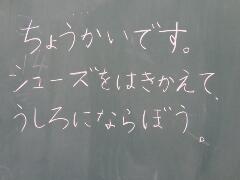 ちょうかいです。
シューズをはきかえて、
うしろにならぼう。